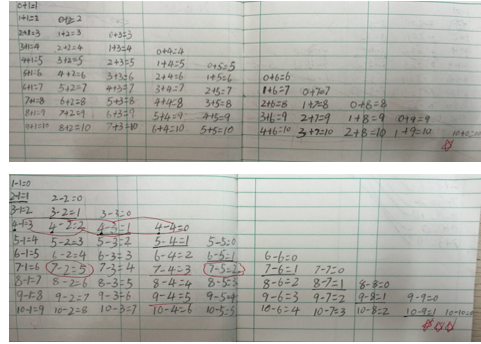 0+1=1
1+1=2 0+2=2
2+1=3 1+2=3 0+3=3
3+1=4 2+2=4 1+3=4 0+4=4
4+1=5 3+2=5 2+3=5 1+4=5 0+5=5
5+1=6 4+2=6 3+3=6 2+4=6 1+5=6 0+6=6
6+1=7 5+2=7 4+3=7 3+4=7 2+5=7 1+6=7 0+7=7
7+1=8 6+2=8 5+3=8 4+4=8 3+5=8 2+6=8 1+7=8 0+8=8
8+1=9 7+2=9 6+3=9 5+4=9 4+5=9 3+6=9 2+7=9 1+8=9 0+9=9
9+1=10 8+2=10 7+3=10 6+4=10 5+5=10 4+6=10 3+7=10 2+8=10 1+9=10
1-1=0
2-1=1 2-2=0
3-1=2 3-2=1 3-3=0
4-1=3 4-2=2 4-3=1 4-4=0
5-1=4 5-2=3 5-3=2 5-4=1 5-5=0
6-1=5 6-2=4 6-3=3 6-4=2 6-5=1 6-6=0
7-1=6 7-2=5 7-3=4 7-4=3 7-5=2 7-6=1 7-7=0
8-1=7 8-2=6 8-3=5 8-4=4 8-5=3 8-6=2 8-7=1 8-8=0
9-1=8 9-2=7 9-3=6 9-4=5 9-5=4 9-6=3 9-7=2 9-8=1 9-9=0
10-1=9 10-2=8 10-3=7 10-4=6 10-5=5 10-6=4 10-7=3 10-8=2 10-9=1 10-10=0